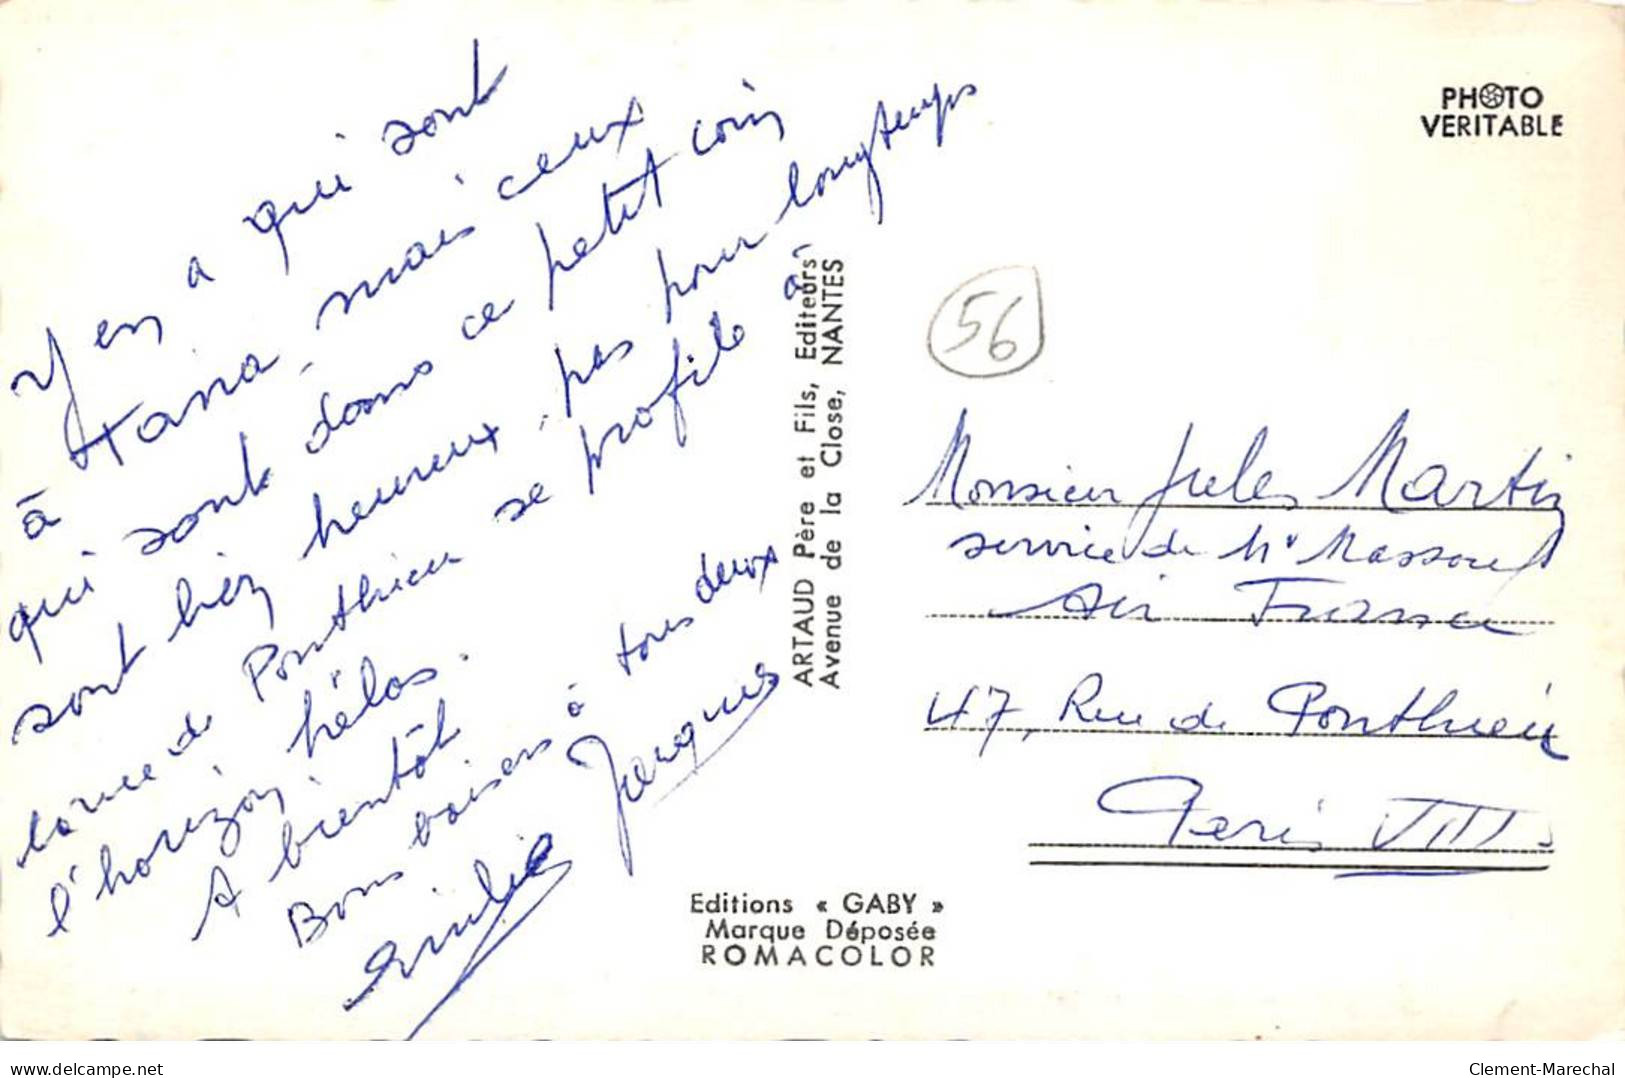 Y en a qui sont
à Tana, mais ceux
qui sont dans ce petit coin
sont bien heureux, pas pour longtemps
la rue de Ponthieu se profile à
l'horizon, hélas.
A bientôt
Bons baisers à tous deux
Emilie Jacques
ARTAUD Père et Fils, Editeurs
Avenue de la Close, NANTES
PHOTO
VERITABLE
56
Monsieur Jules Martin
service de Mr
Air France
47, Rue de Ponthieu
Paris VIII
Editions « GABY »
Marque Déposée
ROMACOLOR
www.delcampe.net
Clement-Marechal